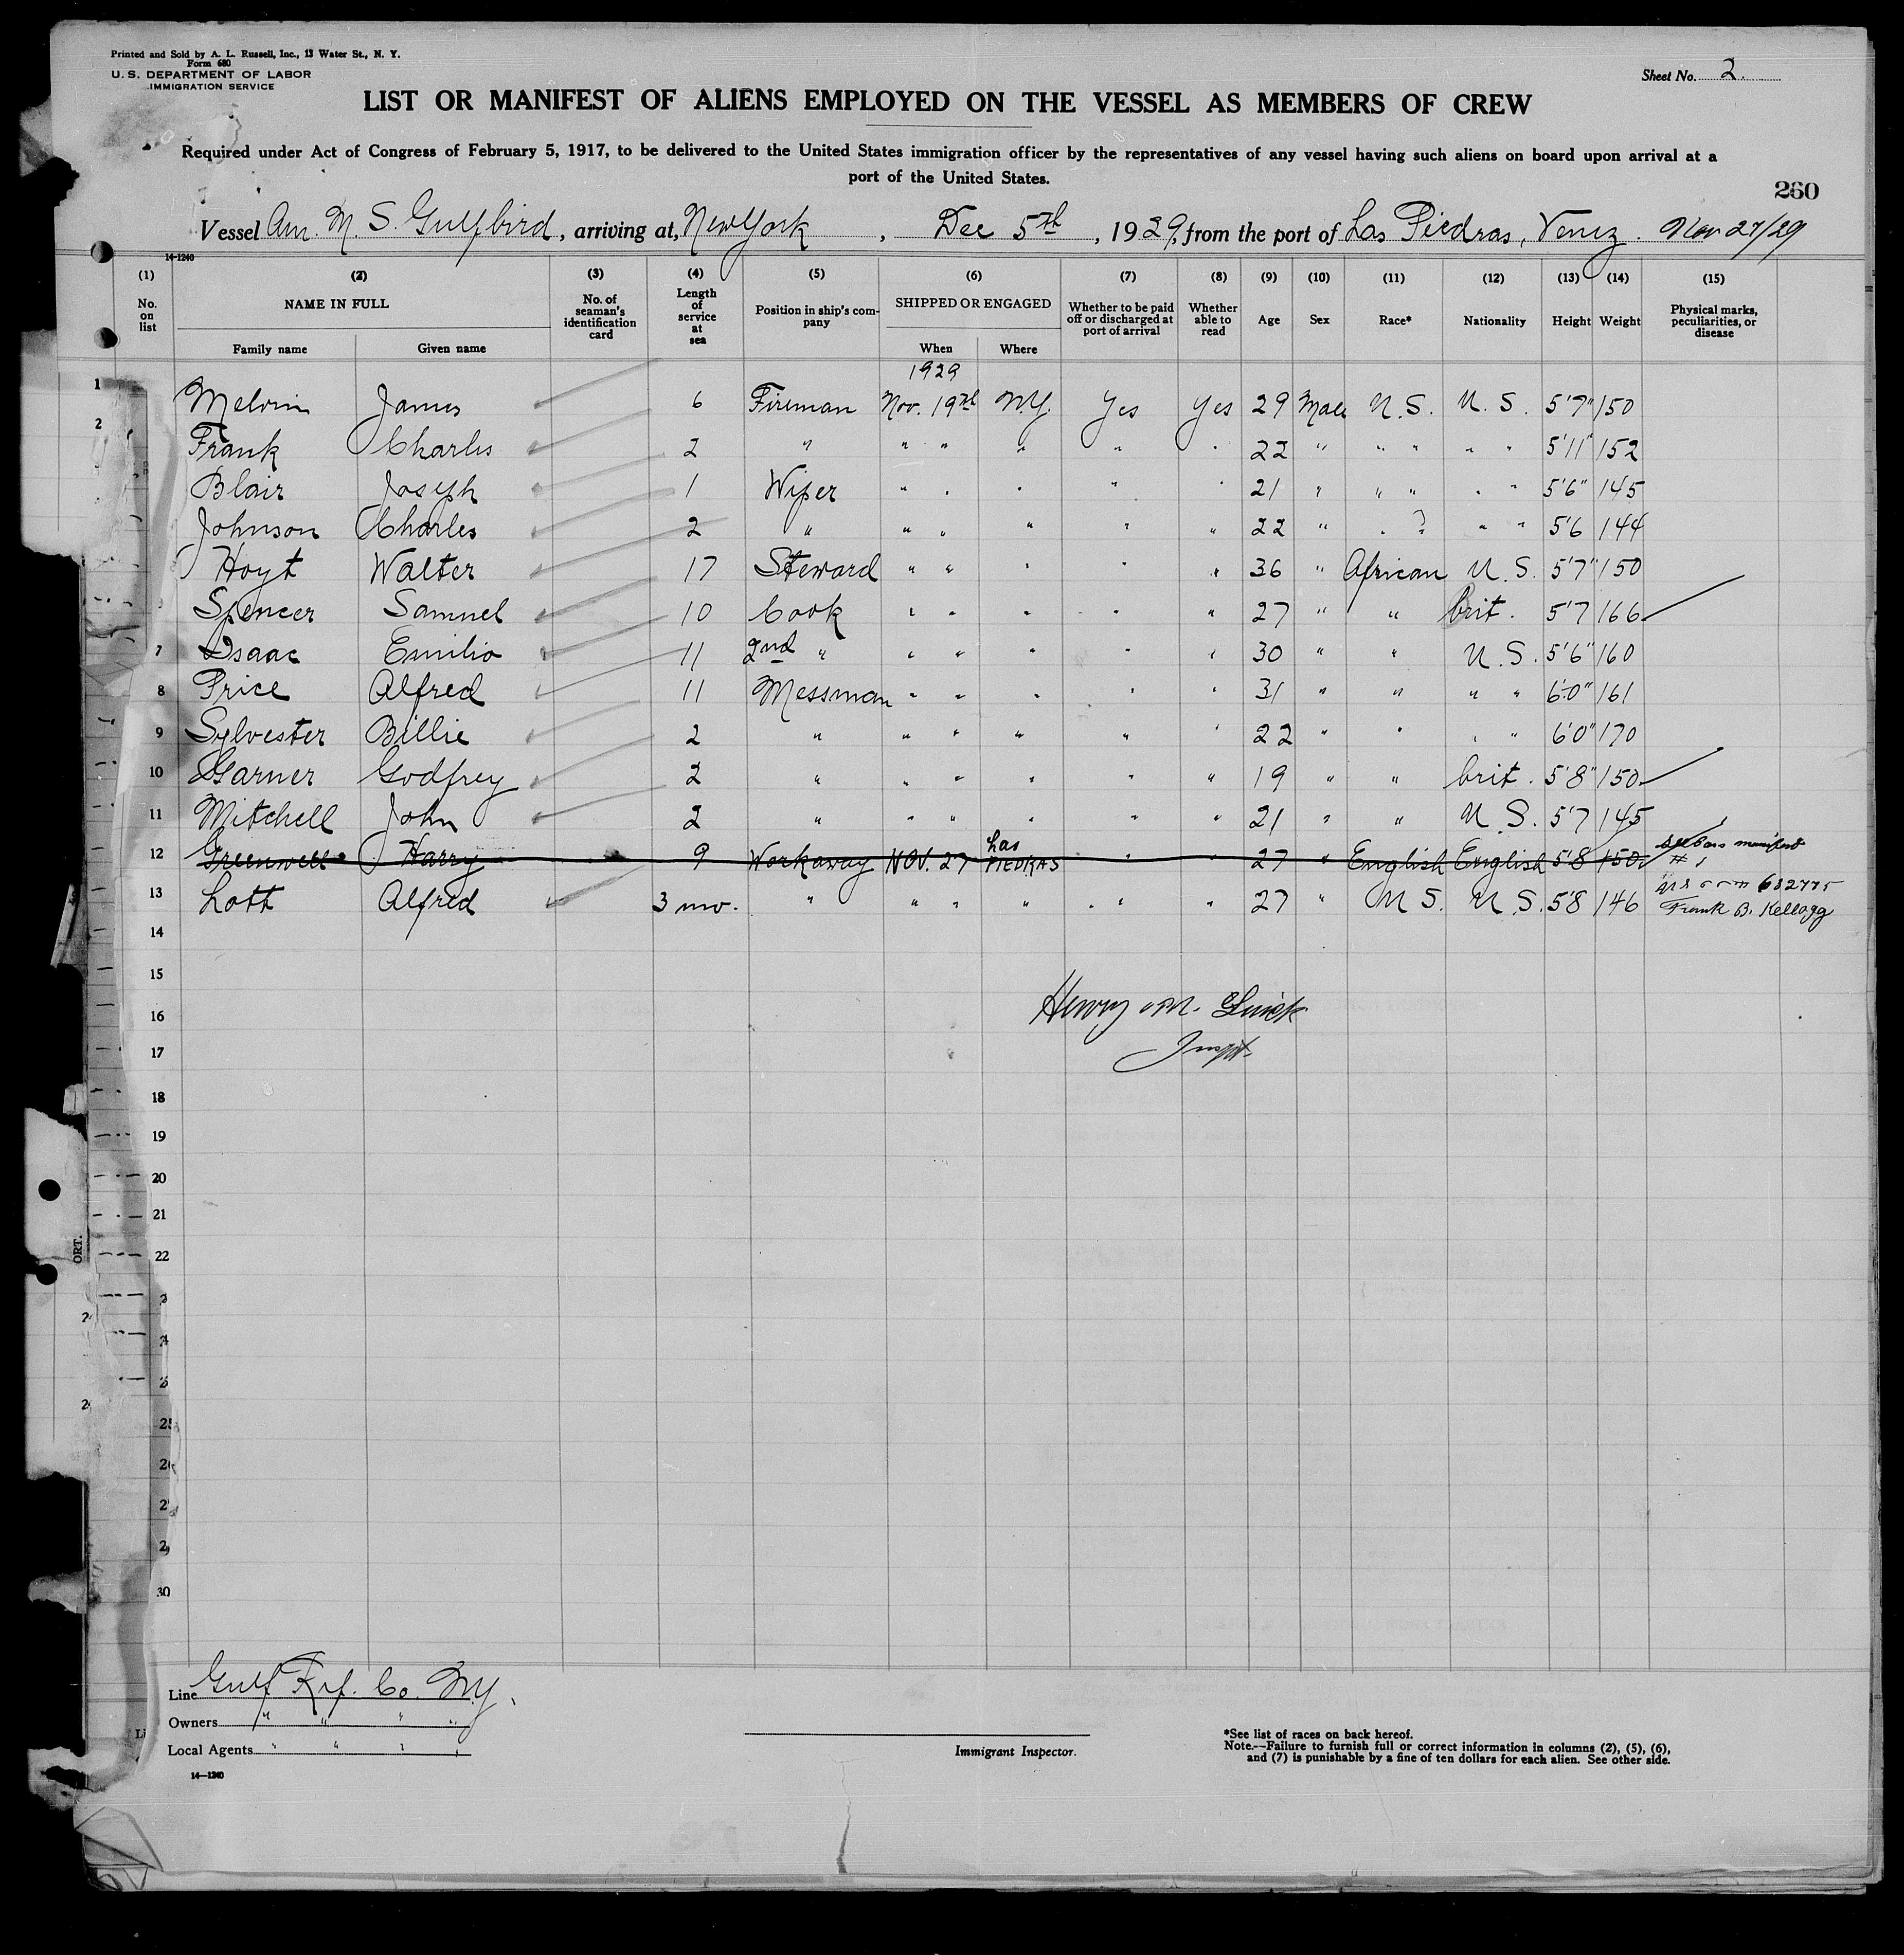 Printed and Sold by A. L. Russell, Inc., 13 Water St., N. Y.
Form 680
U. S. DEPARTMENT OF LABOR
IMMIGRATION SERVICE
Sheet No. 2.
LIST OR MANIFEST OF ALIENS EMPLOYED ON THE VESSEL AS MEMBERS OF CREW
Required under Act of Congress of February 5, 1917, to be delivered to the United States immigration officer by the representatives of any vessel having such aliens on board upon arrival at a
port of the United States.
260
Vessel Am. M. S. Gulfbird, arriving at, New York, Dec 5th, 1929, from the port of Las Piedras, Venez. Nov 27/29
14-1240
(1) (2) (3) (4) (5) (6) (7) (8) (9) (10) (11) (12) (13) (14) (15)
No. on list NAME IN FULL No. of seaman's identification card Length of service at sea Position in ship's company SHIPPED OR ENGAGED Whether to be paid off or discharged at port of arrival Whether able to read Age Sex Race* Nationality Height Weight Physical marks, peculiarities, or disease
Family name Given name When Where
1929
1 Melvin James 6 Fireman Nov. 19th N.Y. Yes Yes 29 Male U.S. U.S. 5'7" 150
2 Frank Charles 2 " " " " " " 22 " " " " " 5'11" 152
Blair Joseph 1 Wiper " " " " " 21 " " " " " 5'6" 145
Johnson Charles 2 " " " " " " 22 " " " " " 5'6 144
Hoyt Walter 17 Steward " " " " " 36 " African U.S. 5'7" 150
Spencer Samuel 10 Cook " " " " " 27 " " brit. 5'7 166
7 Isaac Emilio 11 2nd " " " " " " 30 " " U.S. 5'6" 160
8 Price Alfred 11 Messman " " " " " 31 " " " " 6'0" 161
9 Sylvester Billie 2 " " " " " " 22 " " " " 6'0" 170
10 Garner Godfrey 2 " " " " " " 19 " " brit. 5'8" 150
11 Mitchell John 2 " " " " " " 21 " " U.S. 5'7 145
12 Greenwell Harry 9 Workaway NOV. 27 Las PIEDRAS " " 27 " English English 5'8 150 manifest
13 Lott Alfred 3 mo. " " " " " " 27 " U.S. U.S. 5'8 146 Frank B. Kellogg
14
15
16
17
18
19
20
21
22
30
Henry M.
Inspt.
ORT.
Line Gulf Ref. Co. N.Y.
Owners " " " "
Local Agents " " " "
14—1240
Immigrant Inspector.
*See list of races on back hereof.
Note.—Failure to furnish full or correct information in columns (2), (5), (6),
and (7) is punishable by a fine of ten dollars for each alien. See other side.